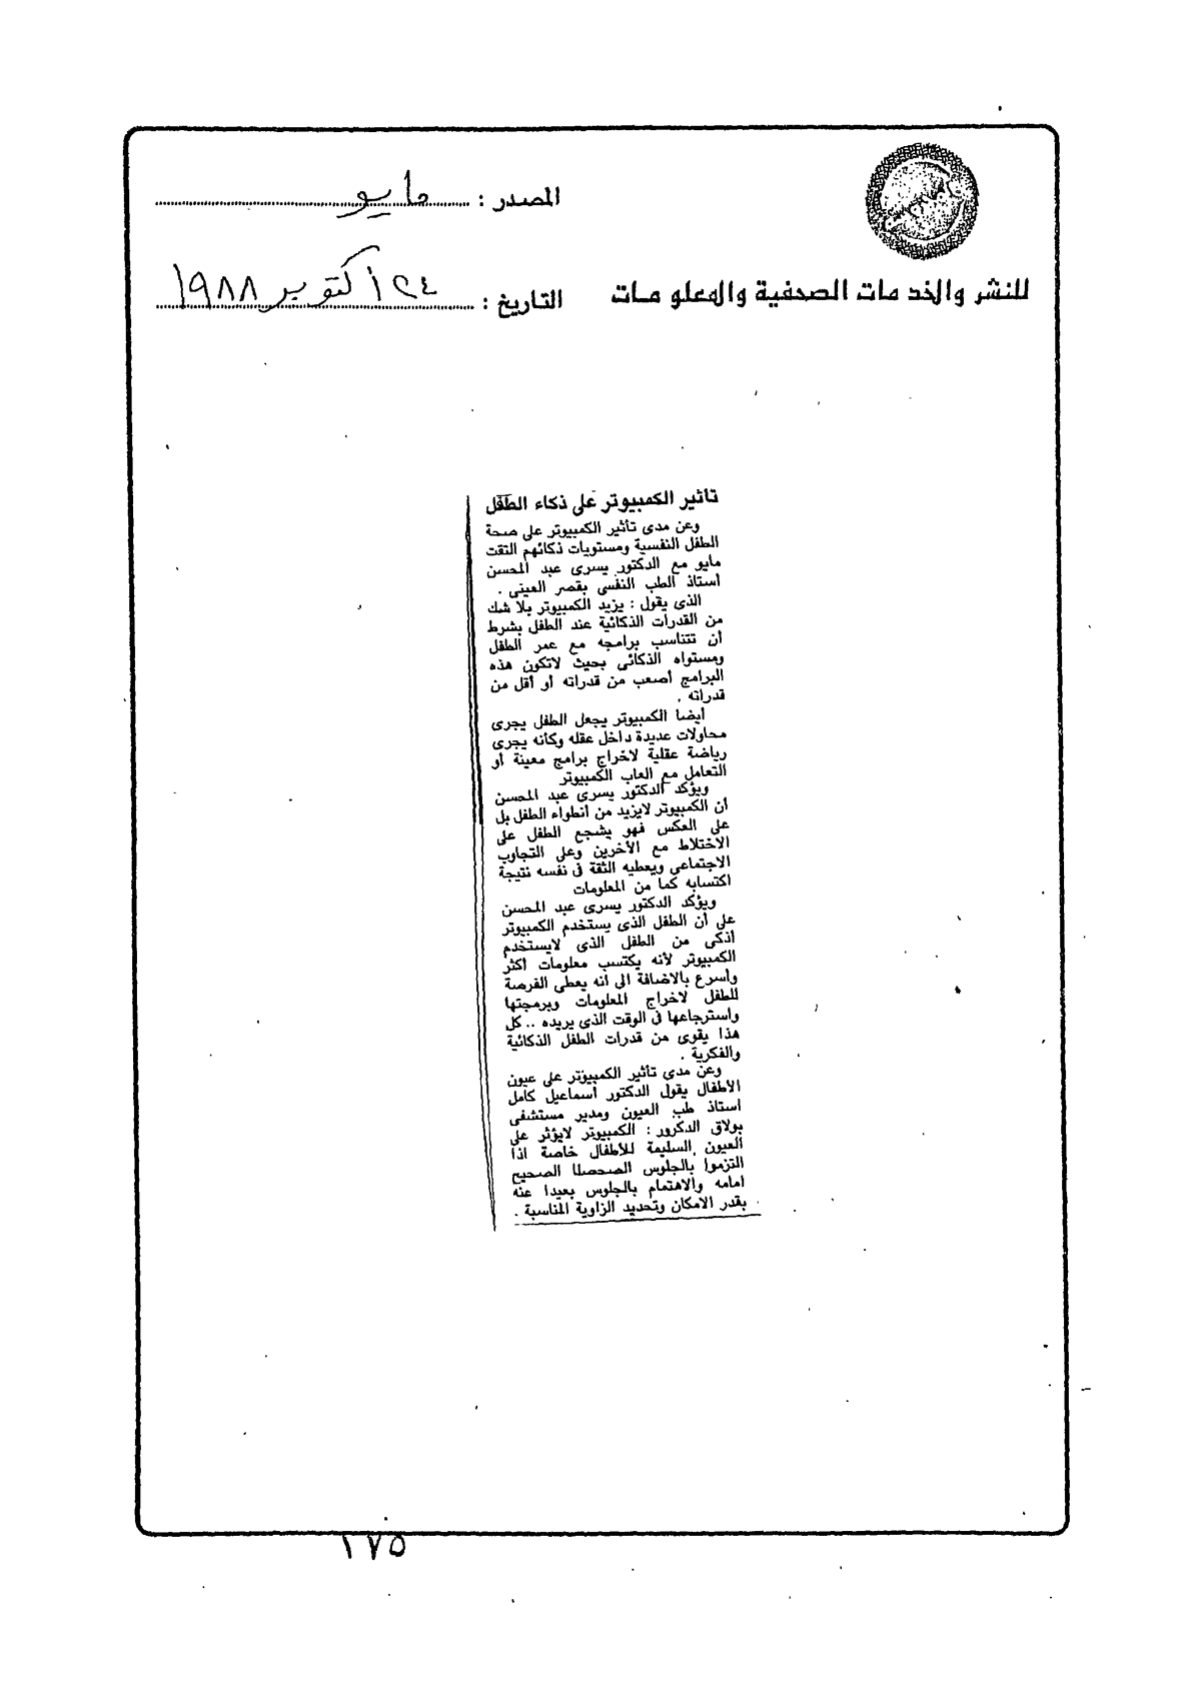 المصدر : مايو
للنشر والخدمات الصحفية والمعلومات
التاريخ : ٢٤ أكتوبر ١٩٨٨
تأثير الكمبيوتر على ذكاء الطفل
وعن مدى تأثير الكمبيوتر على صحة
الطفل النفسية ومستويات ذكائهم التقت
مايو مع الدكتور يسرى عبد المحسن
أستاذ الطب النفسى بقصر العينى .
الذى يقول : يزيد الكمبيوتر بلا شك
من القدرات الذكائية عند الطفل بشرط
أن تتناسب برامجه مع عمر الطفل
ومستواه الذكائى بحيث لاتكون هذه
البرامج أصعب من قدراته أو أقل من
قدراته .
أيضا الكمبيوتر يجعل الطفل يجرى
محاولات عديدة داخل عقله وكأنه يجرى
رياضة عقلية لاخراج برامج معينة أو
التعامل مع العاب الكمبيوتر
ويؤكد الدكتور يسرى عبد المحسن
أن الكمبيوتر لايزيد من أنطواء الطفل بل
على العكس فهو يشجع الطفل على
الاختلاط مع الأخرين وعلى التجاوب
الاجتماعى ويعطيه الثقة فى نفسه نتيجة
اكتسابه كما من المعلومات
ويؤكد الدكتور يسرى عبد المحسن
على أن الطفل الذى يستخدم الكمبيوتر
أذكى من الطفل الذى لايستخدم
الكمبيوتر لأنه يكتسب معلومات أكثر
وأسرع بالاضافة الى أنه يعطى الفرصة
للطفل لاخراج المعلومات وبرمجتها
واسترجاعها فى الوقت الذى يريده .. كل
هذا يقوى من قدرات الطفل الذكائية
والفكرية .
وعن مدى تأثير الكمبيوتر على عيون
الأطفال يقول الدكتور أسماعيل كامل
استاذ طب العيون ومدير مستشفى
بولاق الدكرور : الكمبيوتر لايؤثر على
العيون السليمة للأطفال خاصة اذا
التزموا بالجلوس الصحيح
امامه والاهتمام بالجلوس بعيدا عنه
بقدر الامكان وتحديد الزاوية المناسبة .
١٧٥